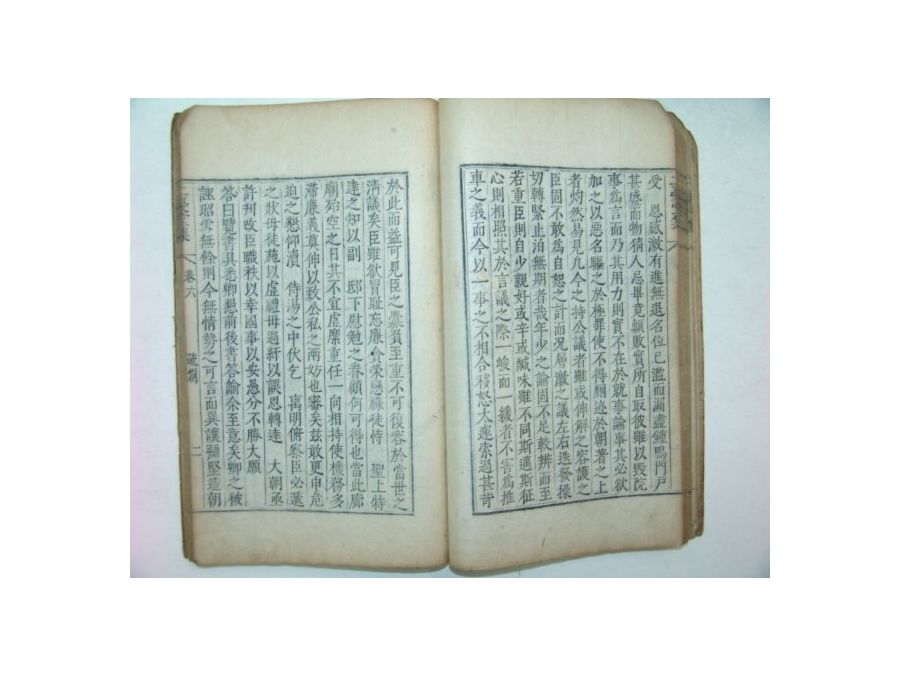 受 恩感激有進無退名位已濫而滿盈鍾鳴門戶
甚盛而物猜人忌畢竟顚敗實所自取彼雖以毁院
事爲言而乃其用力則實不在於就事論事其必欲
加之以惡名驅之於極罪使不得厠迹於朝著之上
者灼然易見凡今之持公議者雖或伸解之容護之
臣固不敢爲自恕之計而況層激之議左右迭發操
切轉緊止泊無期者哉年少之論固不足較辨而至
若重臣則自少親好或辛或鹹味雖不同斯邁斯征
心則相照其於言議之際一峻而一緩者不害爲推
車之義而今以一事之不相合
於此而益可見臣之 至重不可復容於當世之
淸議矣臣雖欲冒耻忘廉貪榮戀祿徒恃 聖上特
達之知以副 邸下慰勉之眷顧何可得也當此廊
廟殆空之日其不宜虛縻重任一向相持使機務多
滯廉義莫伸以致公私之兩妨也審矣玆敢更申危
迫之懇仰瀆 侍湯之中伏乞 离明俯察臣必遞
之狀毋徒施以虛禮毋過紆以誤恩轉達 大朝亟
許刊改臣職秩以幸國事以安愚分不勝大願
答曰覽書具悉卿懇前後書答諭余至意矣卿之被
誣昭雪無餘則今無情勢之可言而巽讓 堅造朝
卷六
二